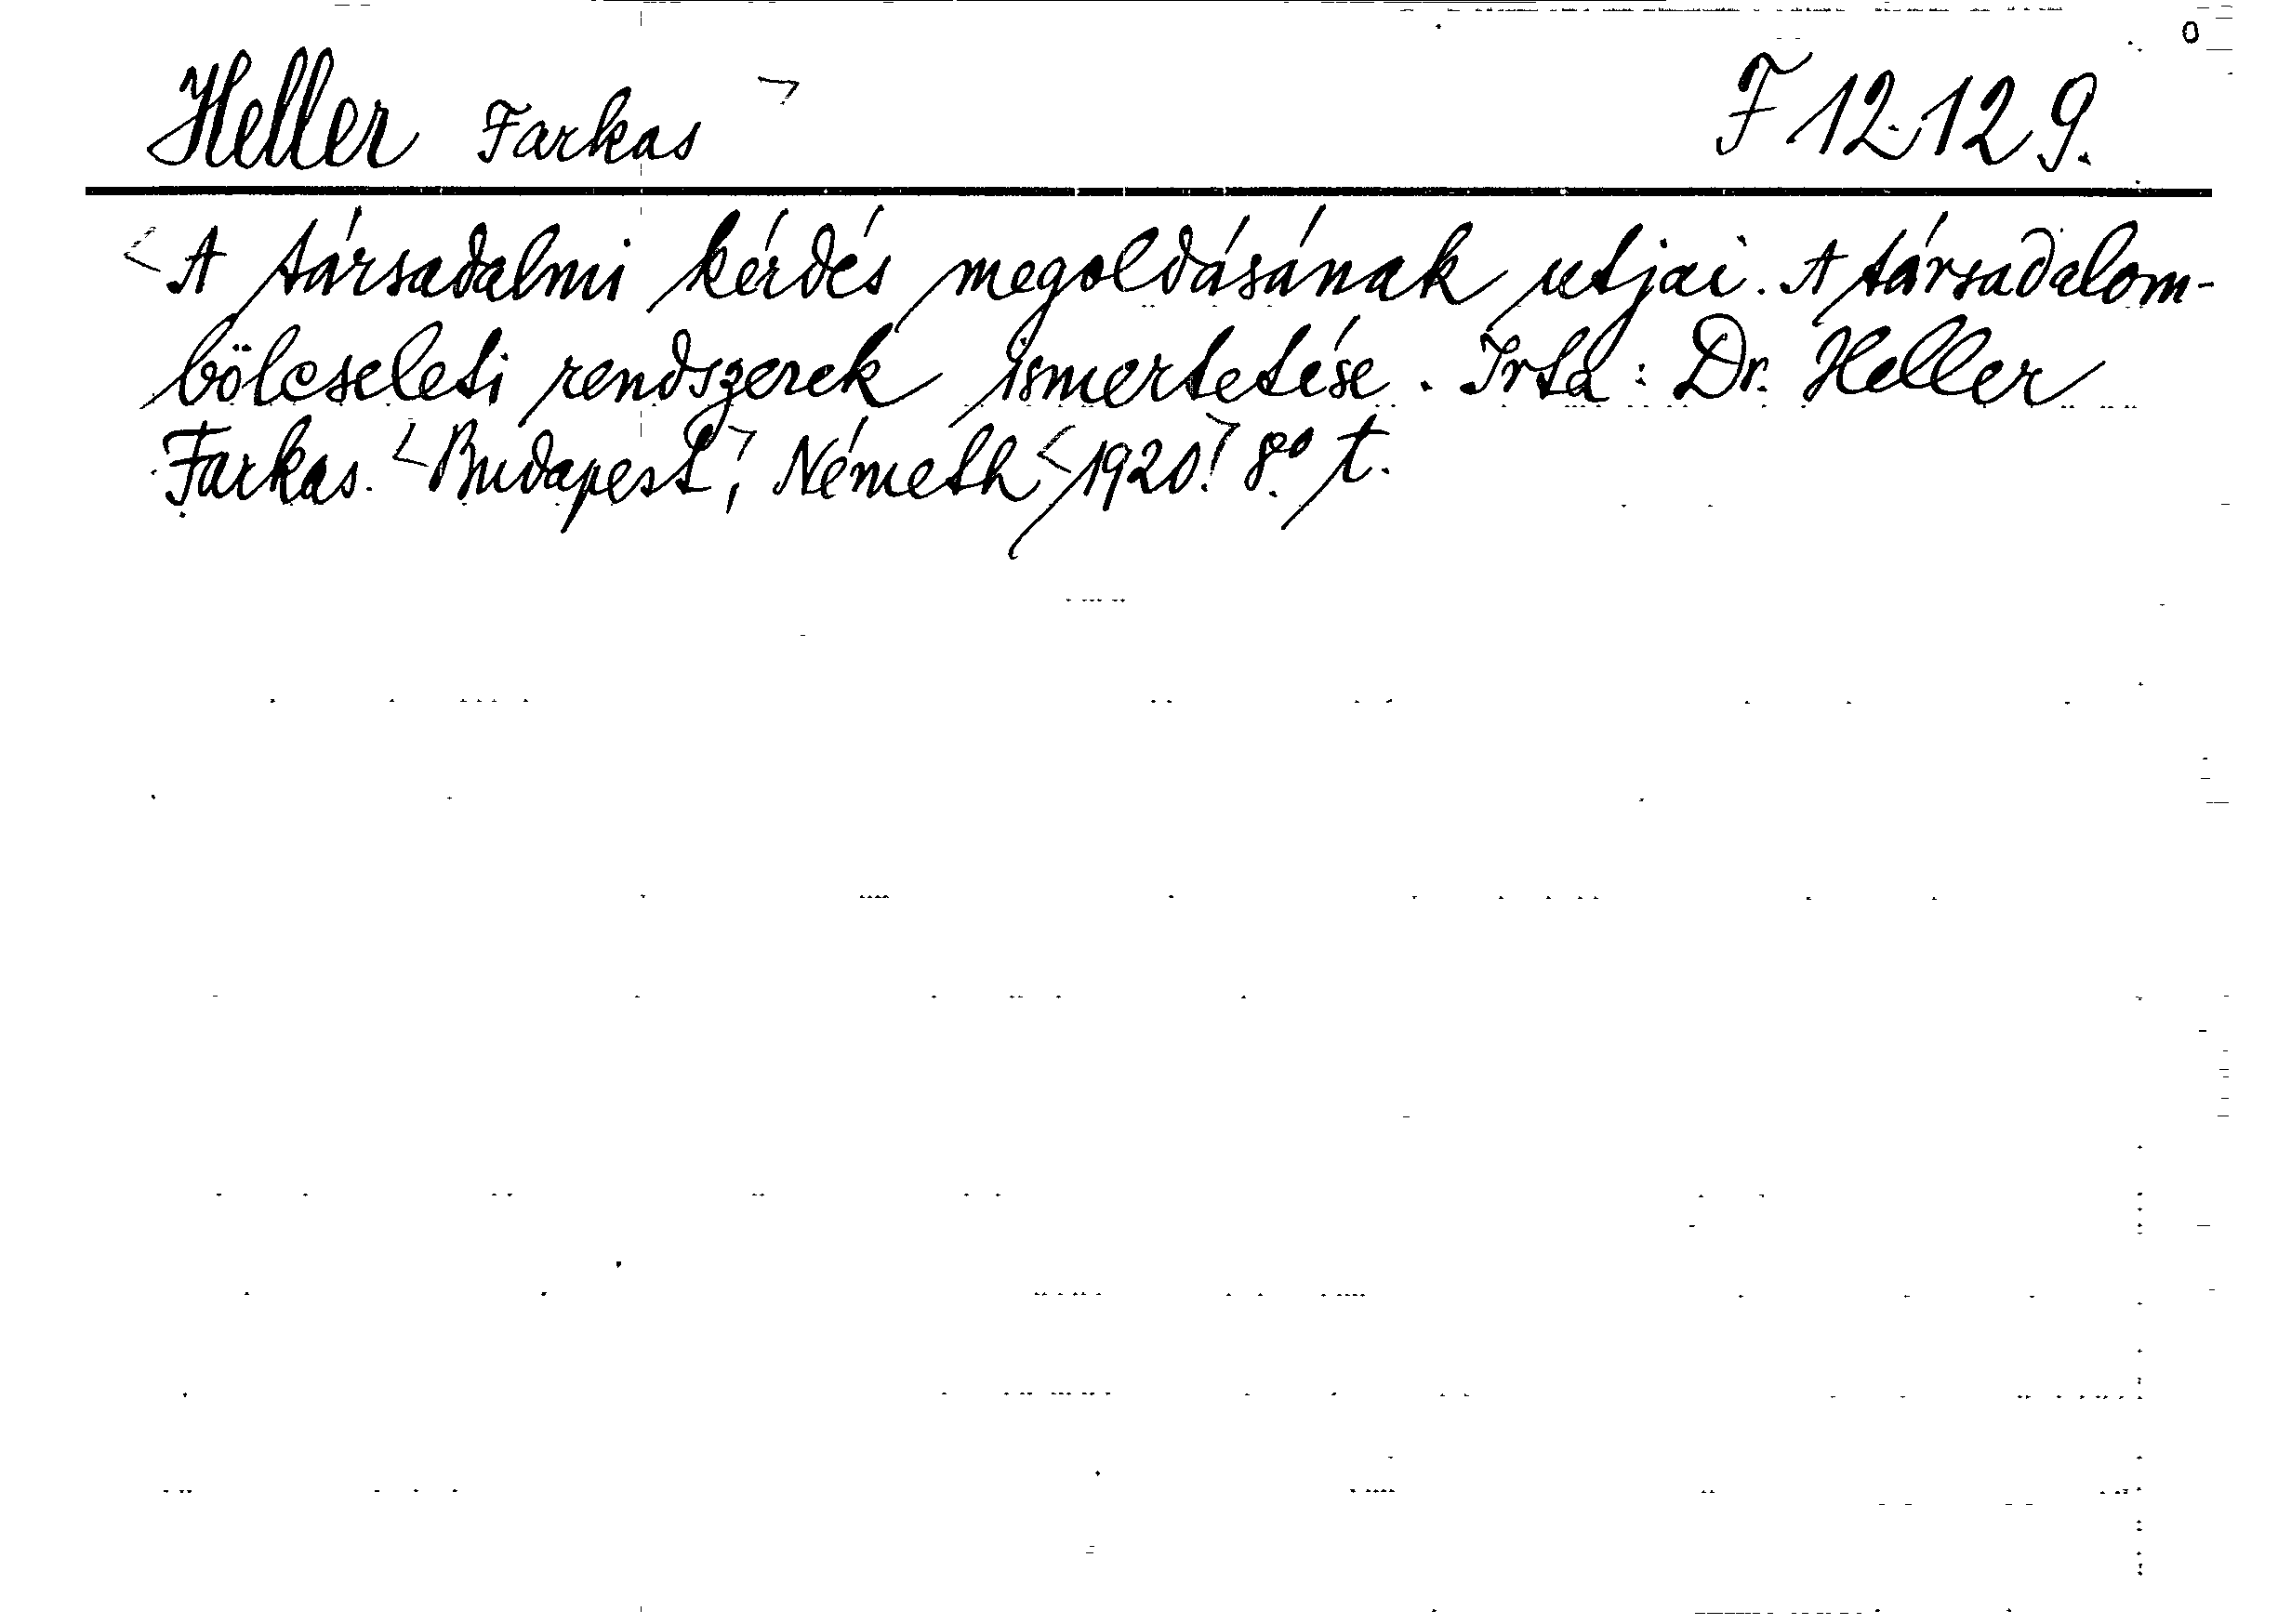 Heller Farkas ¬ F 12.129.
<A társadalmi kérdés megoldásának utjai. A társadalom-
bölcseleti rendszerek ismertetése. Irta: Dr. Heller
Farkas. <Budapest,¬ Németh <1920.¬ 8.° t.